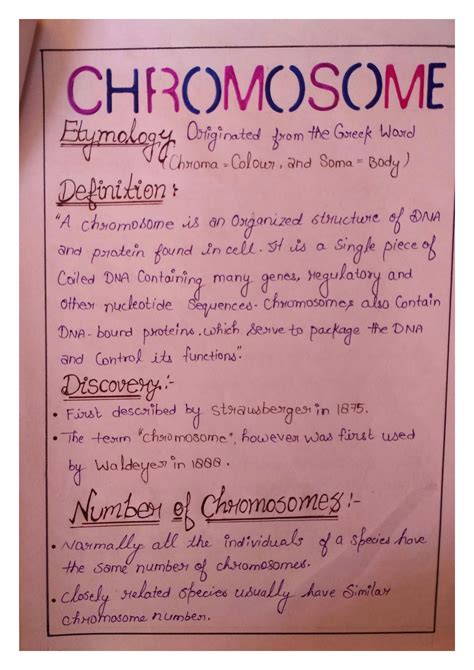 CHROMOSOME
Etymology Originated from the Greek Word
(Chroma = Colour, and Soma = Body)
Definition :
"A chromosome is an Organized structure of DNA
and protein found in cell. It is a Single piece of
Coiled DNA Containing many genes, regulatory and
Other nucleotide Sequences. Chromosomes also Contain
DNA-bound proteins. which Serve to package the DNA
and Control its functions".
Discovery:-
• First described by Strausberger in 1875.
• The term "Chromosome", however was first used
by Waldeyer in 1888.
Number of Chromosomes:-
• Normally all the individuals of a Species have
the Same number of chromosomes.
• Closely related Species usually have Similar
chromosome number.